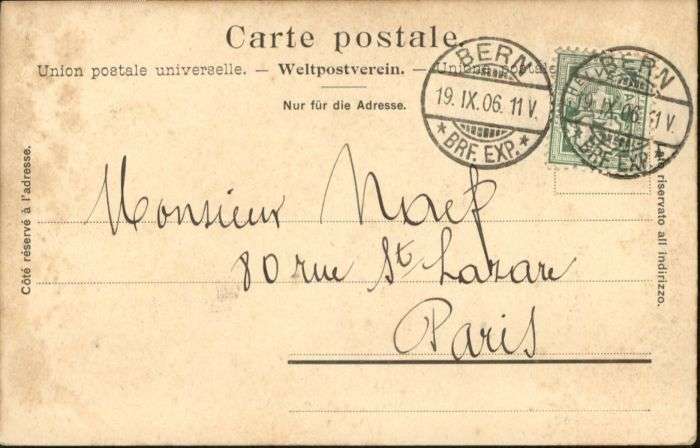 Carte postale.
Union postale universelle. — Weltpostverein. — Unione postale
Nur für die Adresse.
BERN
19. IX. 06. 11 V.
* BRF. EXP. *
BERN
19. IX. 06. 11 V.
* BRF. EXP. *
HELVETIA
Côté réservé à l'adresse.
riservato all indirizzo.
Monsieur Naef
80 rue St Lazare
Paris